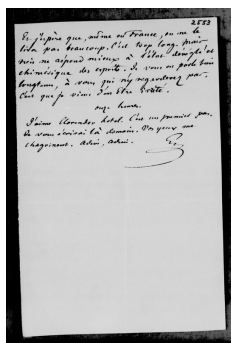 2553
Et j'espère que, même en France, on ne le
lira pas beaucoup. C'est trop long. Mais
rien ne répond mieux à l'état
des esprits. Je vous en parle bien
longtems, à vous qui n'y regarderez pas.
C'est que je viens d'en être
onze heures.
J'aime Clarendon hôtel. C'est un premier pas.
Je vous écrirai là demain. Vos yeux me
chagrinent. Adieu, adieu.